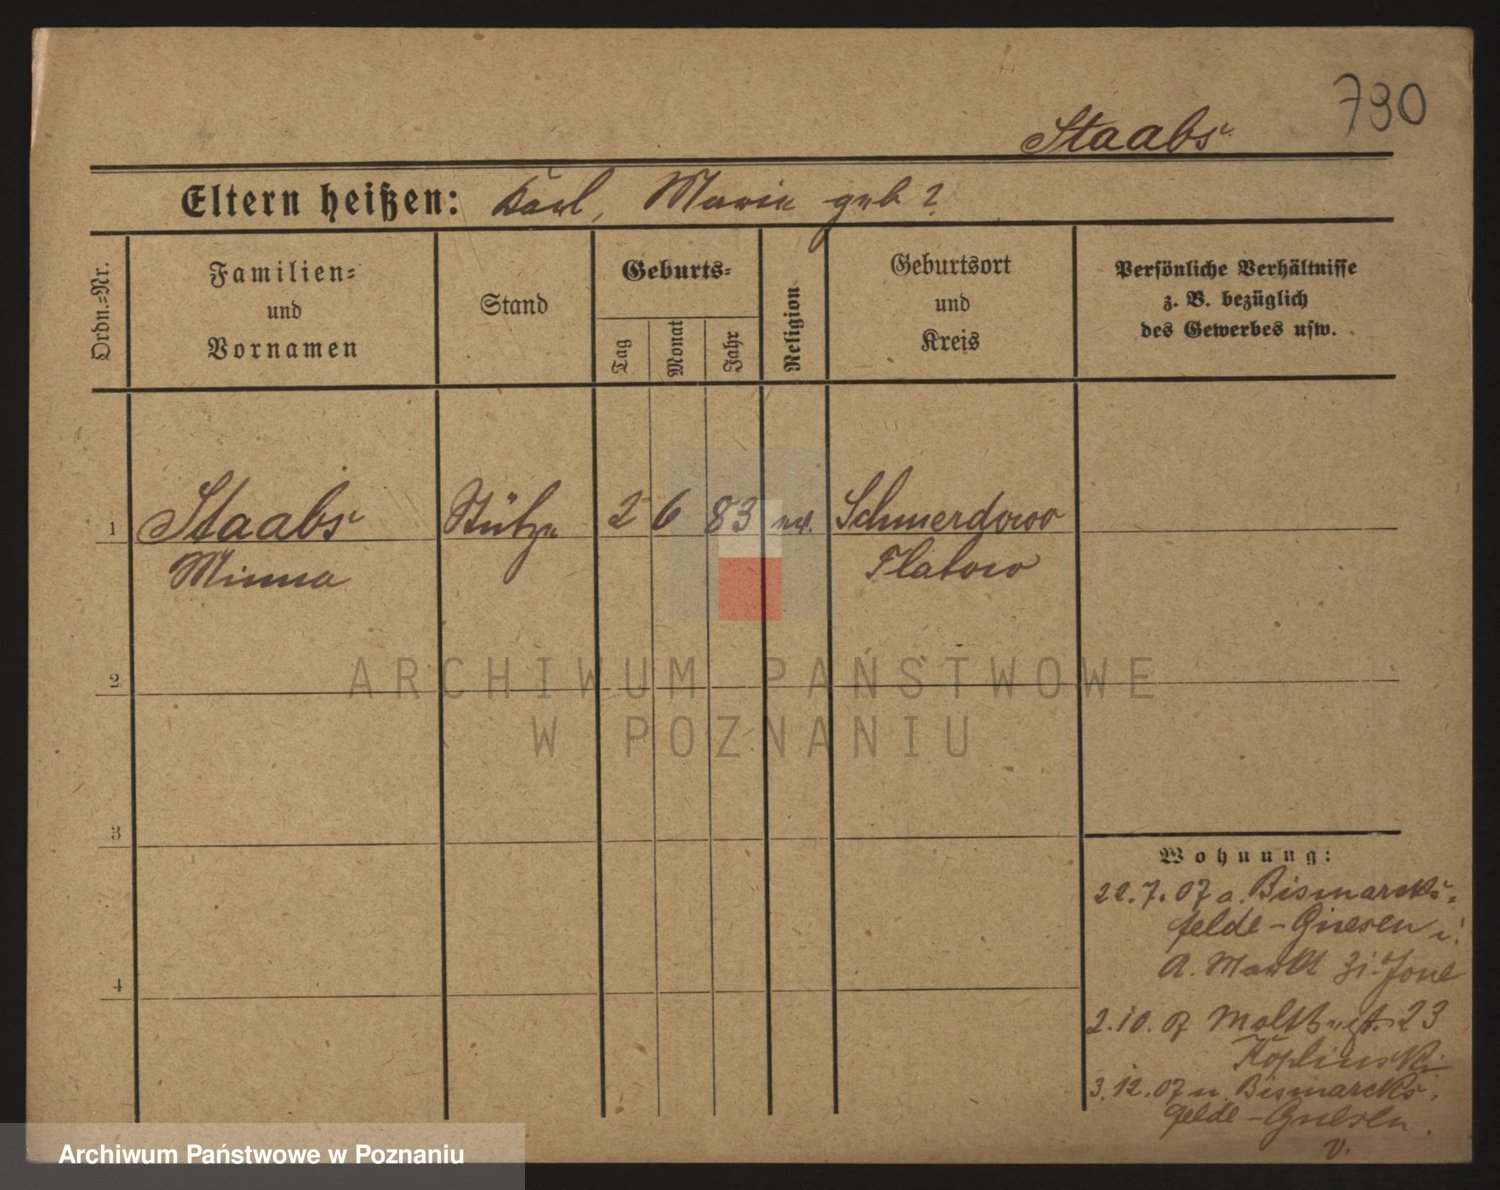 790
Staabs
Eltern heißen: Karl, Marie geb ?
Ordn.=Nr.
Familien=
und
Vornamen
Stand
Geburts=
Tag
Monat
Jahr
Religion
Geburtsort
und
Kreis
Persönliche Verhältnisse
z. B. bezüglich
des Gewerbes usw.
1 Staabs Stütze 2 6 83 ev. Schmerdowo
Minna Flatow
2
3
4
Wohnung:
22.7.07 a. Bismarcks=
felde-Gnesen
A. Markt 3
2.10.07 23
Koplinski
3.12.07 n. Bismarcks
felde-Gnesen.
v.
ARCHIWUM PAŃSTWOWE
W POZNANIU
Archiwum Państwowe w Poznaniu